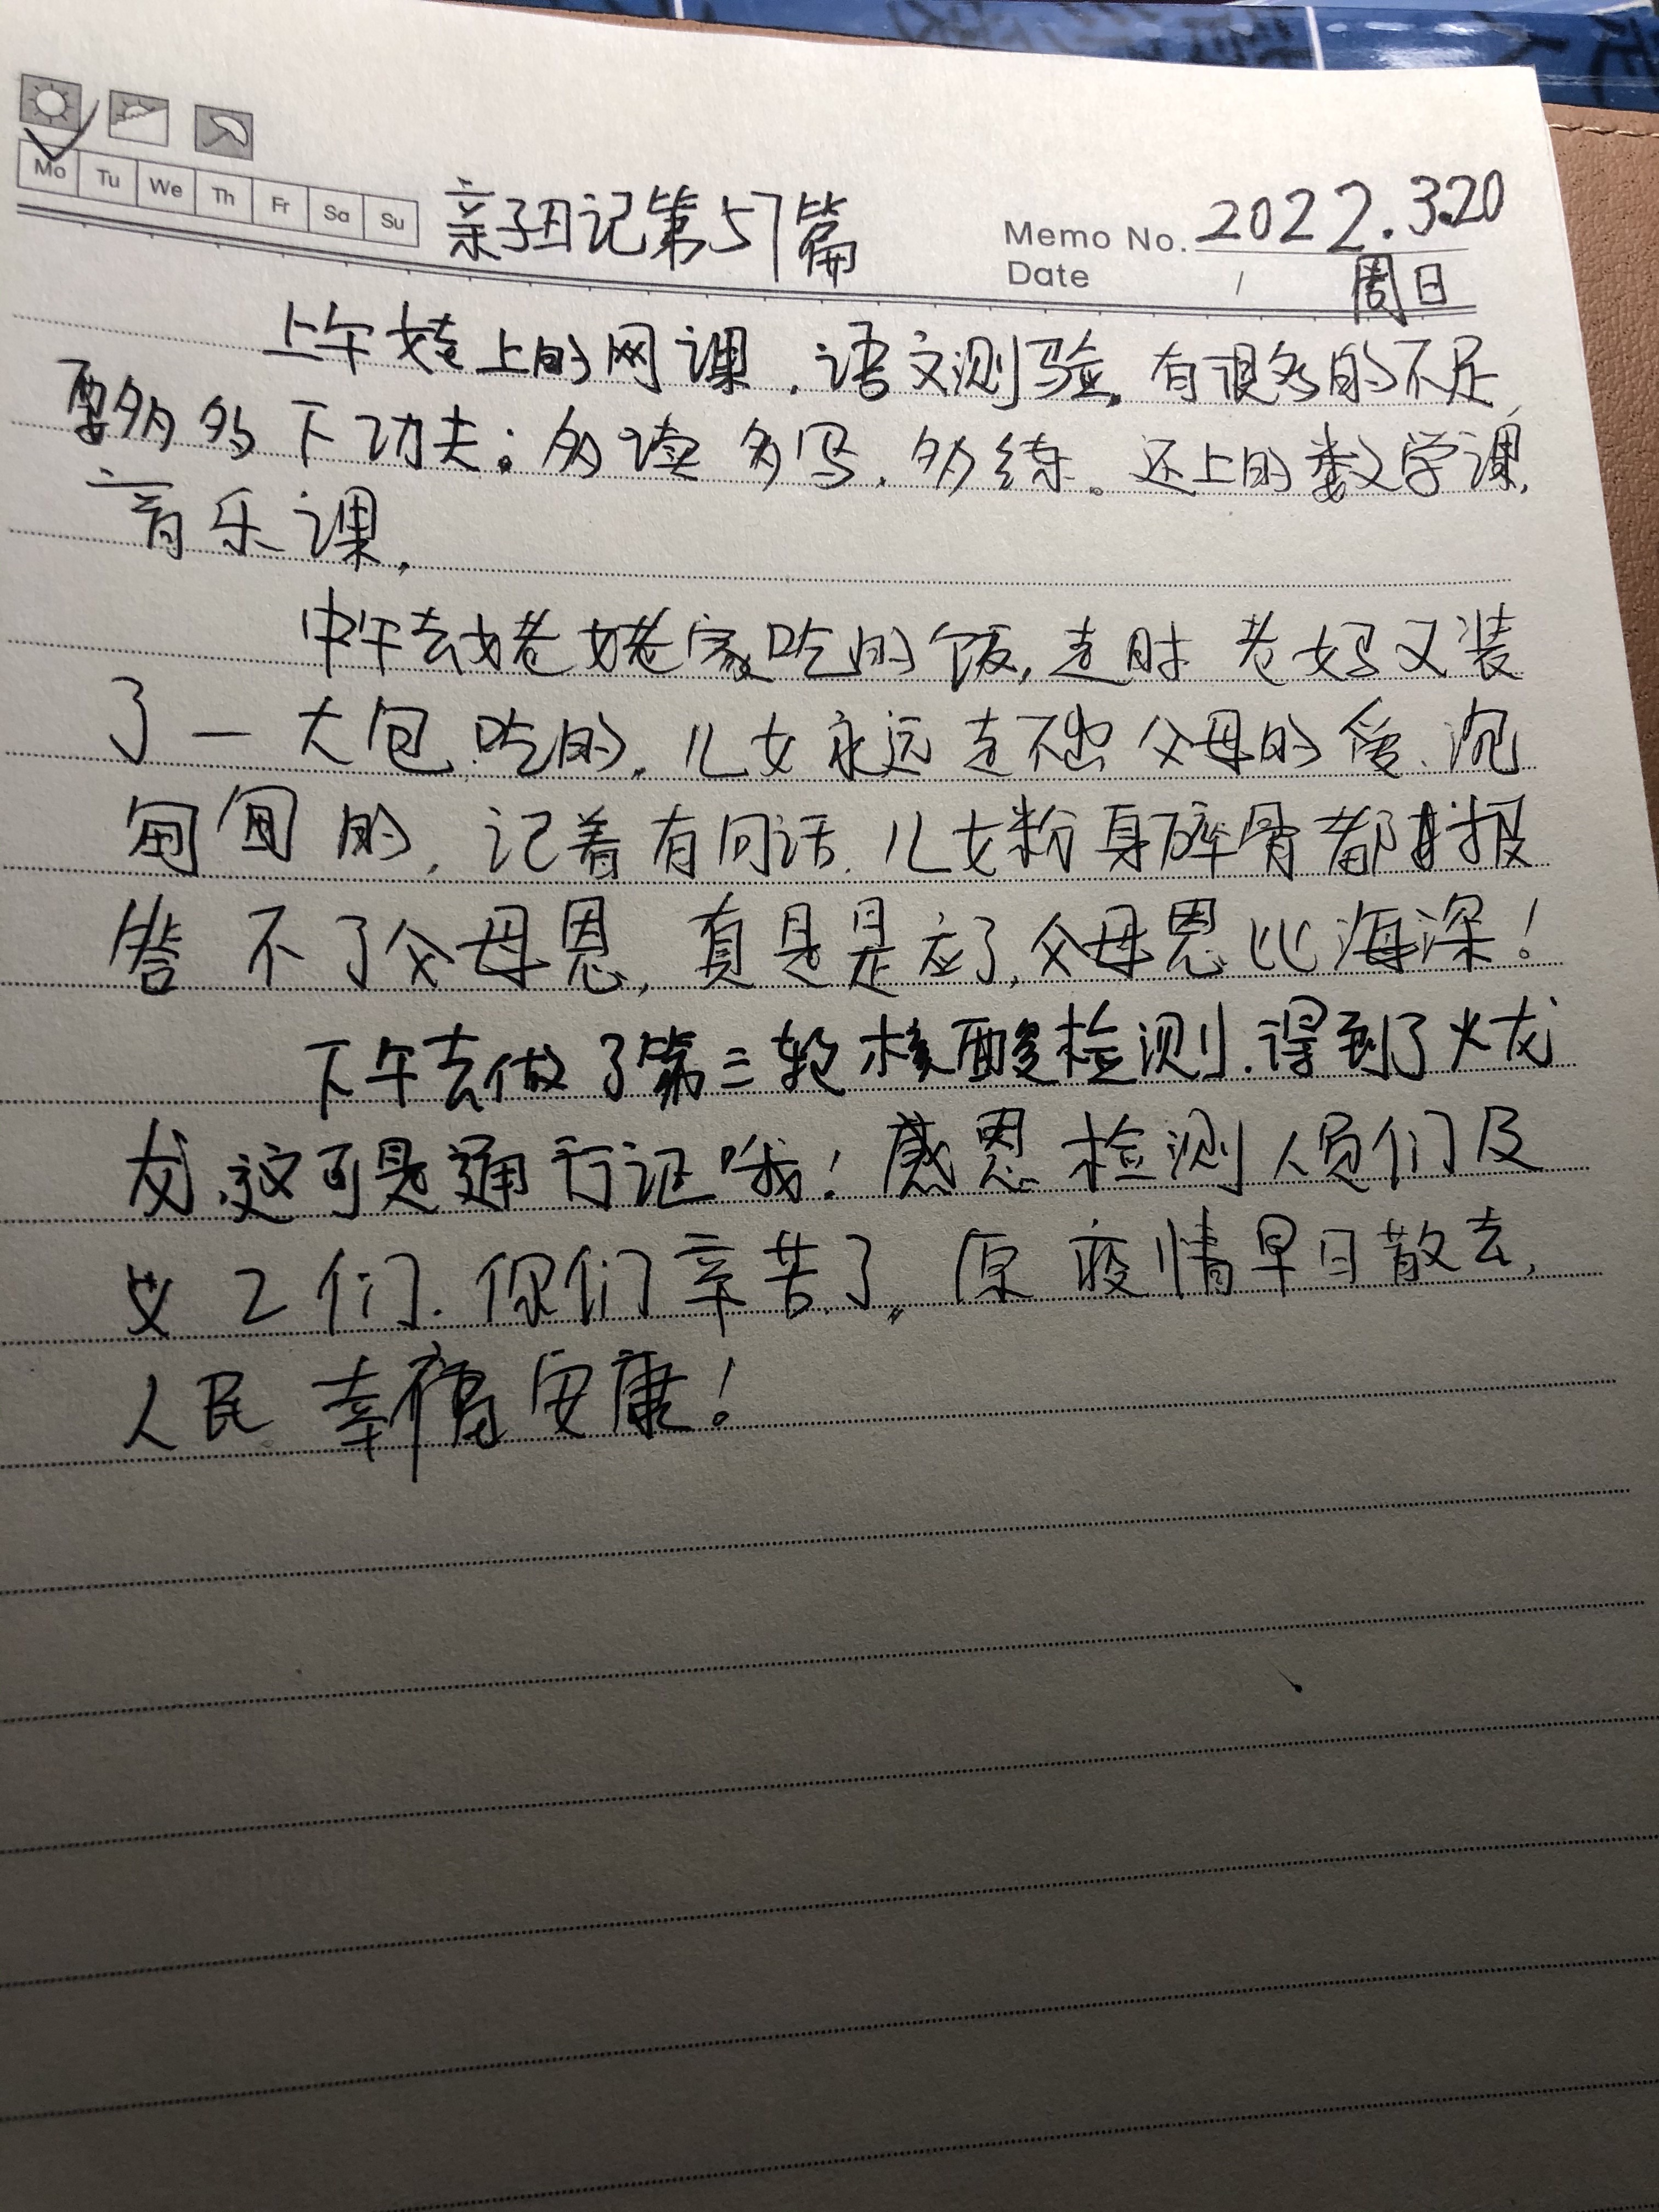 Mo Tu We Th Fr Sa Su
亲子日记第57篇
Memo No. 2022.3.20
Date / 周日
上午女老上的网课，语文测验，有很多的不足，
要多多下功夫：多读多写，多练。还上的数学课，
音乐课，
中午去姥姥家吃的饭，走时老妈又装
了一大包吃的，儿女永远走不出父母的爱，沉
甸甸的，记着有句话，儿女粉身碎骨都报
答不了父母恩，真是是应了，父母恩比海深！
下午去做了第三轮核酸检测，得到了犮
友，这可是通行证哦！感恩检测人员们及
义工们，你们辛苦了，原疫情早日散去，
人民幸福安康！